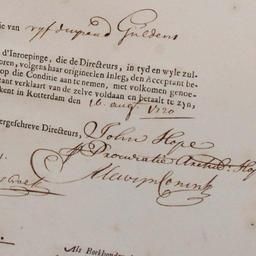 ie van vyf duyzend Guldens
d'Inroepinge, die de Directeurs, in tyd en wyle zul-
oren, volgens haar origineelen Inleg, den Acceptant be-
op die Conditie aan te nemen, met volkomen genoe-
tant verklaart van de zelve voldaan en betaalt te zyn,
kent in Rotterdam den 16 aug. 1720
ergeschreve Directeurs,
John Hope
p Procuratie Archd. Hop
Als Boekhouder